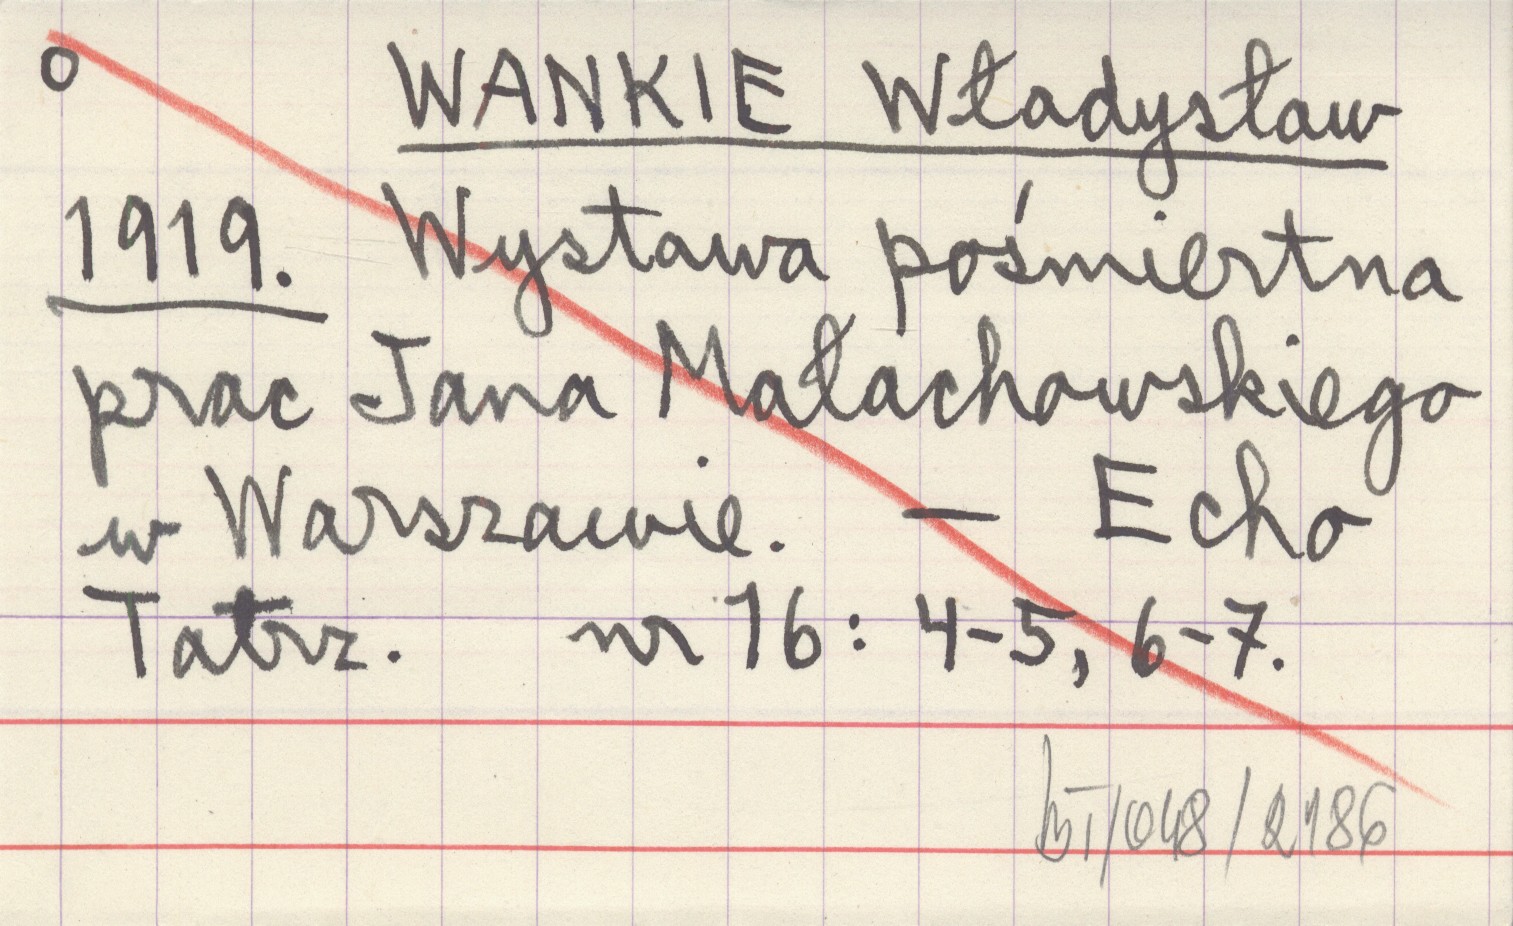 o WANKIE Władysław
1919. Wystawa pośmiertna
prac Jana Małachowskiego
w Warszawie. — Echo
Tatrz. nr 16: 4-5, 6-7.
/048/2186